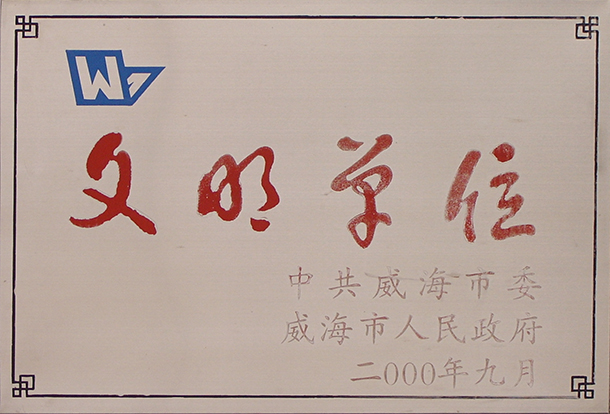 W
文明单位
中共威海市委
威海市人民政府
二000年九月